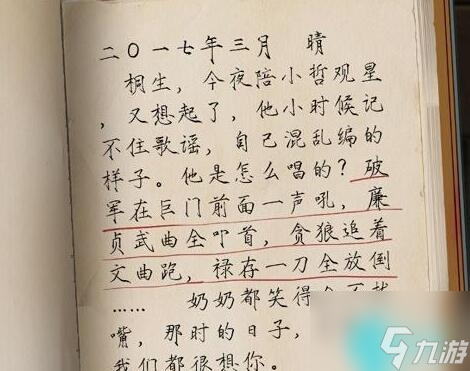 二〇一七年三月 晴
桐生，今夜陪小哲观星
，又想起了，他小时候记
不住歌谣，自己混乱编的
样子。他是怎么唱的？破
军在巨门前面一声吼，廉
贞武曲全叩首，贪狼追着
文曲跑，禄存一刀全放倒
…… 奶奶都笑得
嘴，那时的日子，
我们都很想你。
九游